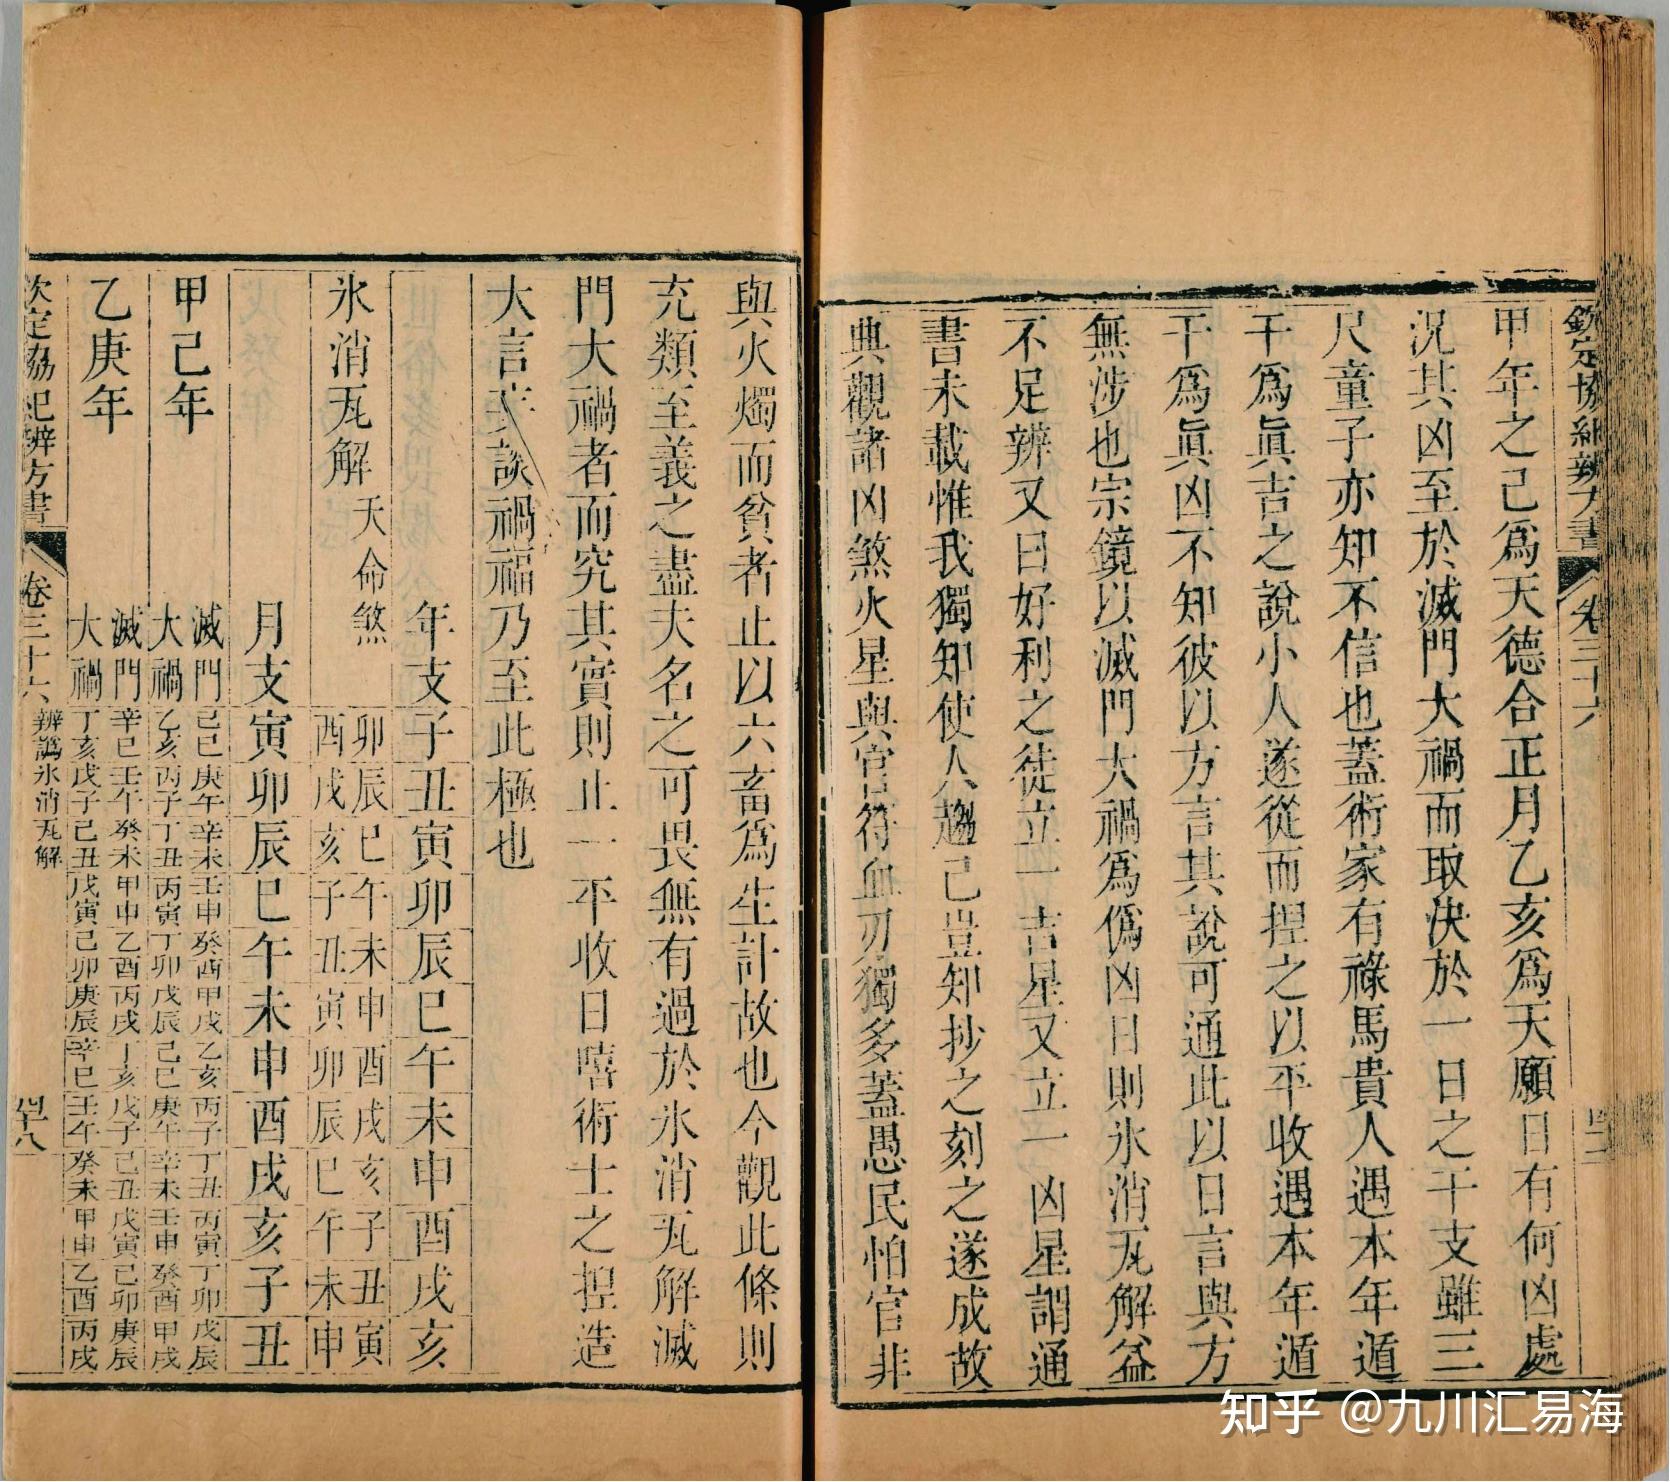 欽定協紀辨方書 卷三十六
甲年之己爲天德合正月乙亥爲天願日有何凶處
況其凶至於滅門大禍而取決於一日之干支雖三
尺童子亦知不信也蓋術家有祿馬貴人遇本年遁
干爲眞吉之說小人遂從而揑之以平收遇本年遁
干爲眞凶不知彼以方言其說可通此以日言與方
無涉也宗鏡以滅門大禍爲僞凶日則氷消瓦解益
不足辨又曰好利之徒立一吉星又立一凶星謂通
書未載惟我獨知使人趨己豈知抄之刻之遂成故
典觀諸凶煞火星與官符血刃獨多蓋愚民怕官非
與火燭而貧者止以六畜爲生計故也今觀此條則
充類至義之盡夫名之可畏無有過於氷消瓦解滅
門大禍者而究其實則止一平收日嘻術士之揑造
大言談禍福乃至此極也
年支子丑寅卯辰巳午未申酉戌亥
氷消瓦解 天命煞
卯辰巳午未申酉戌亥子丑寅
酉戌亥子丑寅卯辰巳午未申
月支寅卯辰巳午未申酉戌亥子丑
甲己年
滅門 己巳庚午辛未壬申癸酉甲戌乙亥丙子丁丑丙寅丁卯戊辰
大禍 乙亥丙子丁丑丙寅丁卯戊辰己巳庚午辛未壬申癸酉甲戌
乙庚年
滅門 辛巳壬午癸未甲申乙酉丙戌丁亥戊子己丑戊寅己卯庚辰
大禍 丁亥戊子己丑戊寅己卯庚辰辛巳壬午癸未甲申乙酉丙戌
欽定協紀辨方書 卷三十六 辨譌氷消瓦解 四十八
知乎 @九川汇易海